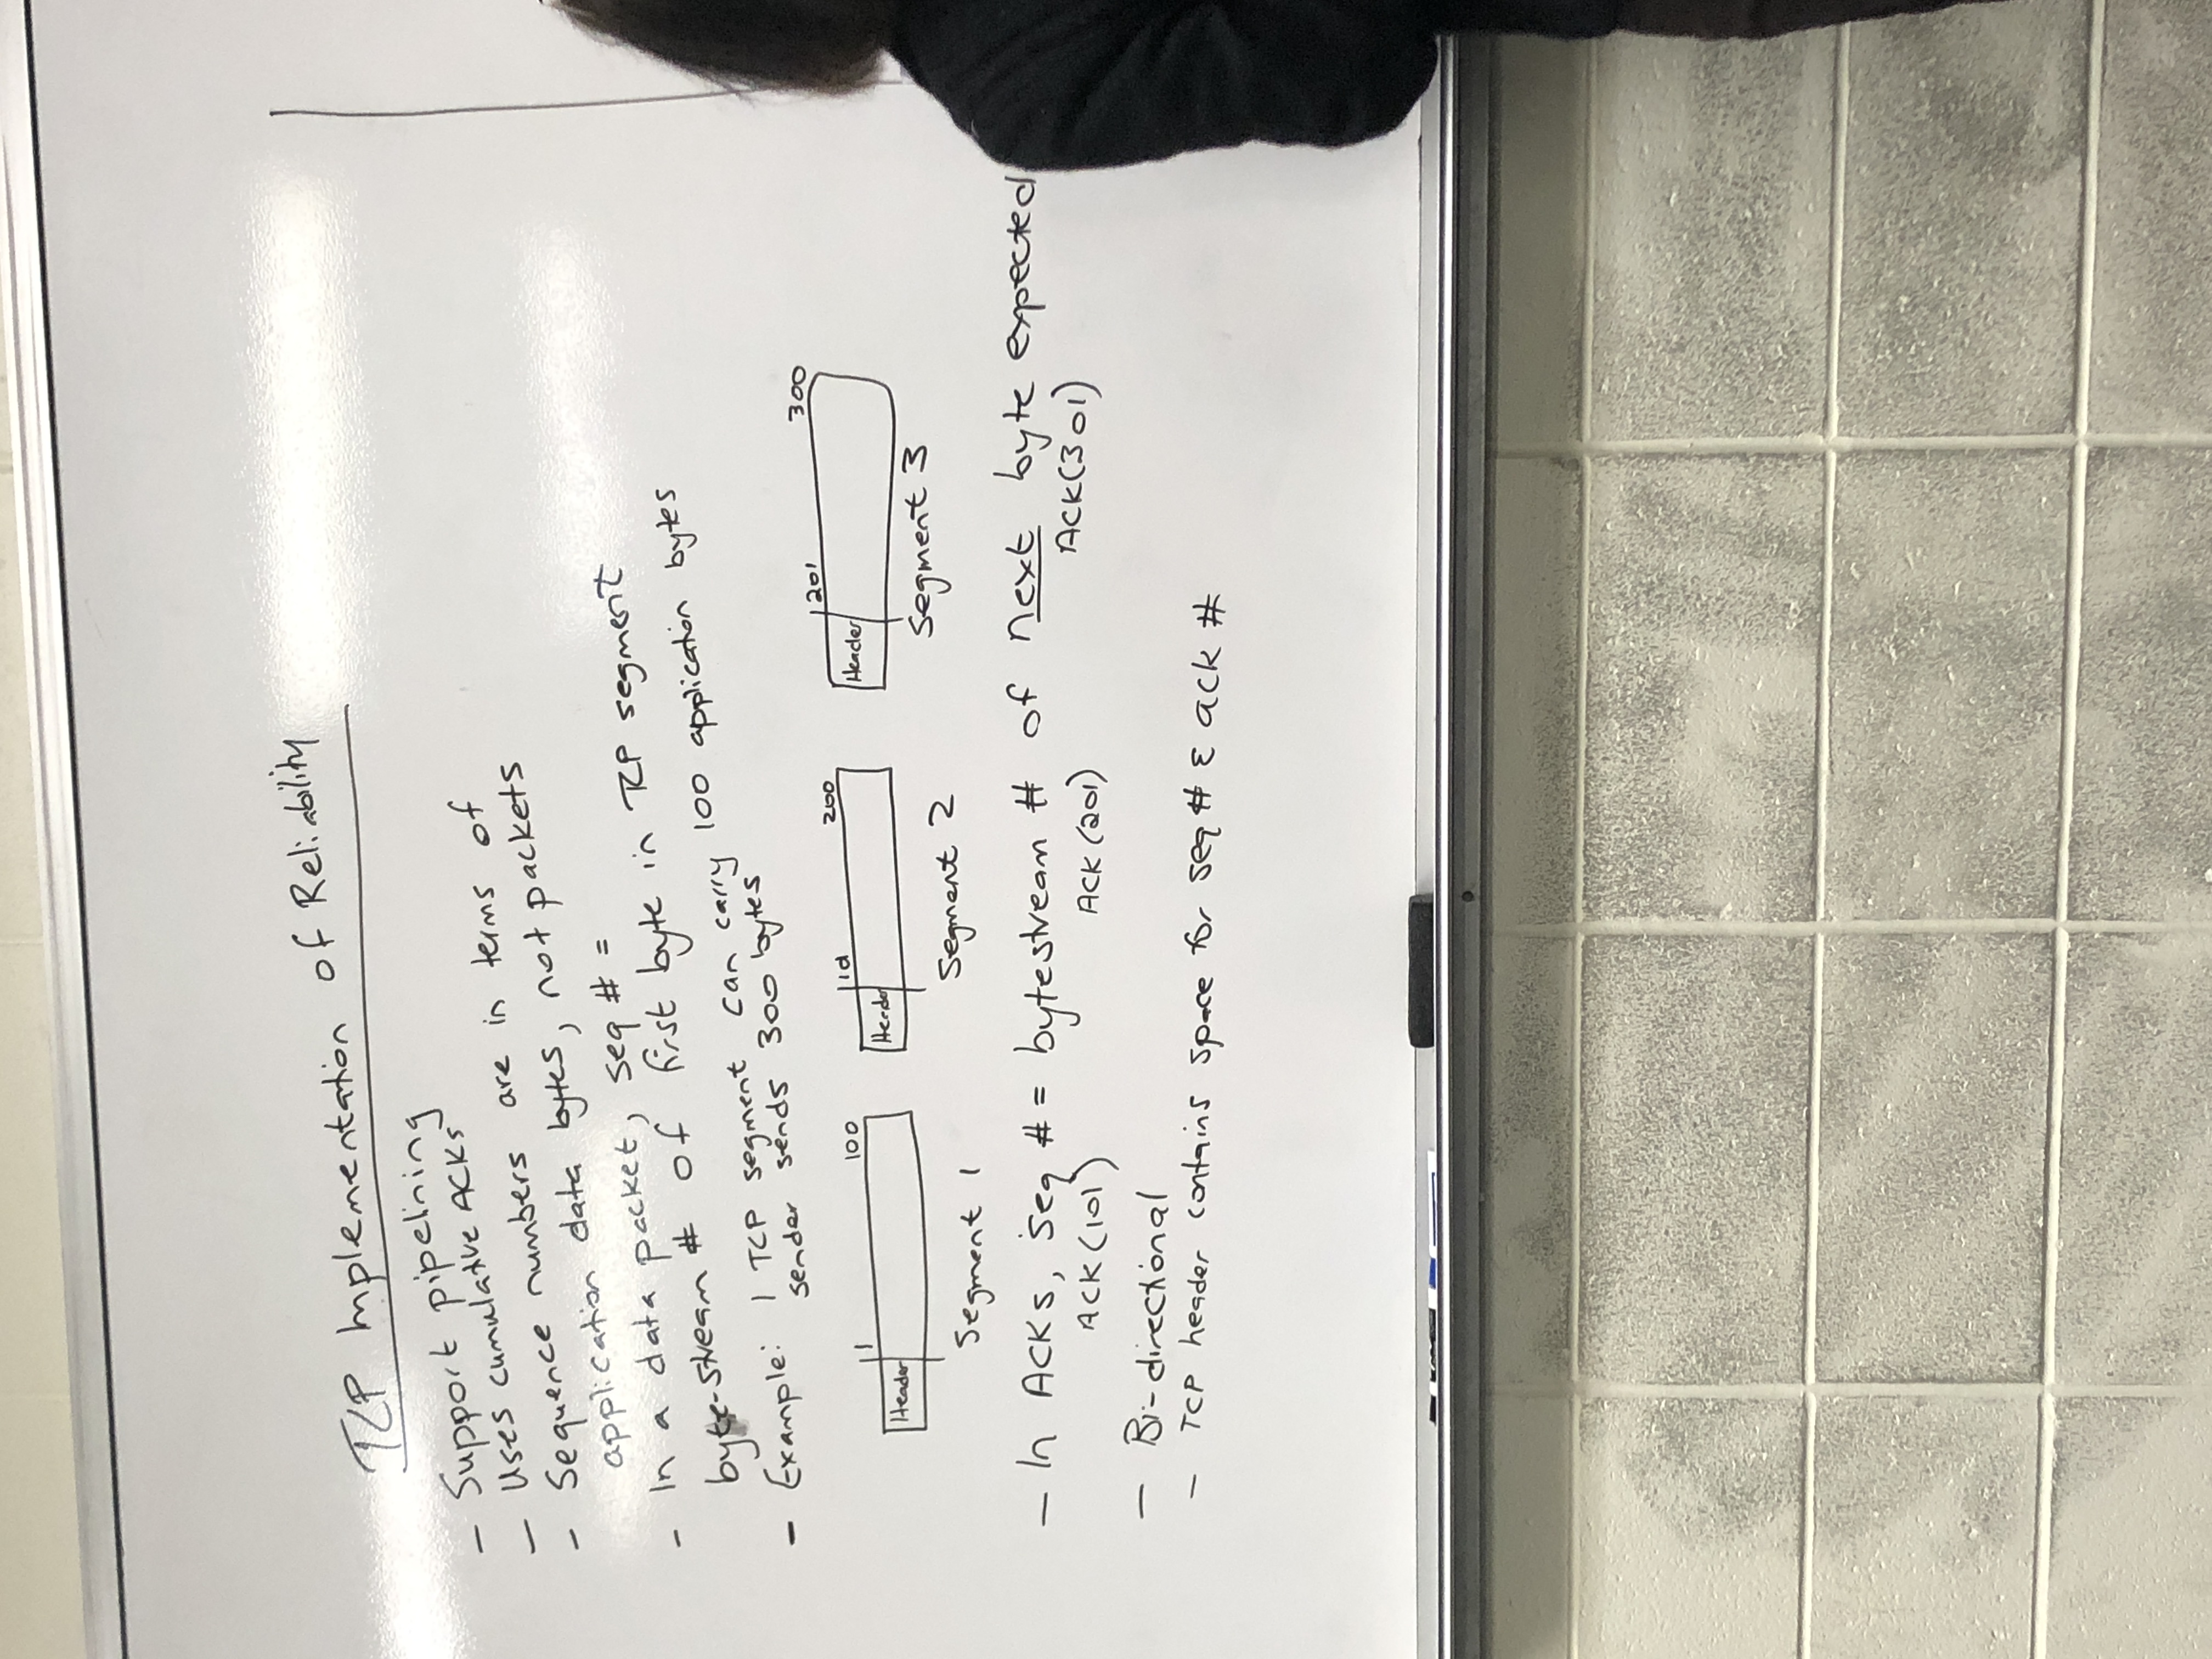 TCP Implementation of Reliability
- Support pipelining
- Uses cumulative ACKs
- Sequence numbers are in terms of
application data bytes, not packets
- In a data packet, seq # =
byte-stream # of first byte in TCP segment
- Example: 1 TCP segment can carry 100 application bytes
sender sends 300 bytes
1 100 101 200 201 300
Header Header Header
Segment 1 Segment 2 Segment 3
- In ACKs, seq # = bytestream # of next byte expected
ACK (101) ACK (201) ACK(301)
- Bi-directional
- TCP header contains space for seq # & ack #